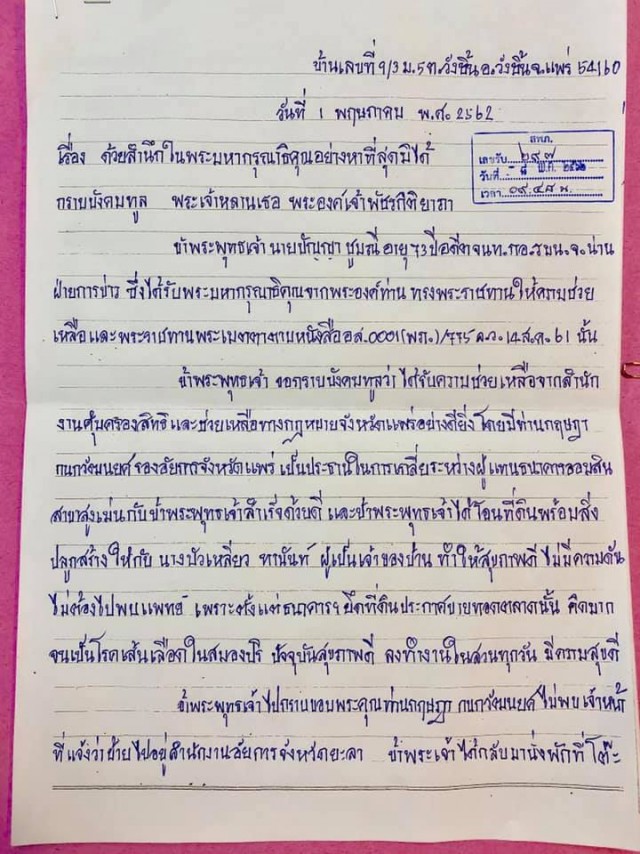 บ้านเลขที่ 9/3 ม.5 ต.วังชิ้น อ.วังชิ้น จ.แพร่ 54160
วันที่ 1 พฤษภาคม พ.ศ. 2562
สฝภ.
เลขรับ ๒๙๗
วันที่ - ๘ พ.ค. ๒๕๖๒
เวลา ๐๙.๔๕ น.
เรื่อง ด้วยสำนึกในพระมหากรุณาธิคุณอย่างหาที่สุดมิได้
กราบบังคมทูล พระเจ้าหลานเธอ พระองค์เจ้าพัชรกิติยาภา
ข้าพระพุทธเจ้า นายปัญญา ชูมณี อายุ 73 ปี อดีต จนท.กอ.รมน.จ.น่าน
ฝ่ายการข่าว ซึ่งได้รับพระมหากรุณาธิคุณจากพระองค์ท่าน ทรงพระราชทานให้ความช่วย
เหลือและพระราชทานพระเมตตาตามหนังสือ อส.0001(พภ.)/775 ล.ว.14 ส.ค.61 นั้น
ข้าพระพุทธเจ้า ขอกราบบังคมทูลว่า ได้รับความช่วยเหลือจากสำนัก
งานคุ้มครองสิทธิและช่วยเหลือทางกฎหมายจังหวัดแพร่อย่างดียิ่ง โดยมีท่านกฤษฎา
กนกวัฒนยศ รองอัยการจังหวัดแพร่ เป็นประธานในการเกลี่ยระหว่างผู้แทนธนาคารออมสิน
สาขาสูงเม่นกับข้าพระพุทธเจ้าสำเร็จด้วยดี และข้าพระพุทธเจ้าได้โอนที่ดินพร้อมสิ่ง
ปลูกสร้างให้กับ นางบัวเหลียว ทานันท์ ผู้เป็นเจ้าของบ้าน ทำให้สุขภาพดี ไม่มีความดัน
ไม่ต้องไปพบแพทย์ เพราะตั้งแต่ธนาคารฯ ยึดที่ดินประกาศขายทอดตลาดนั้น คิดมาก
จนเป็นโรคเส้นเลือดในสมองปริ ปัจจุบันสุขภาพดี ลงทำงานในสวนทุกวัน มีความสุขดี
ข้าพระพุทธเจ้าไปกราบขอบพระคุณท่านกฤษฎา กนกวัฒนยศ ไม่พบ เจ้าหน้า
ที่แจ้งว่าย้ายไปอยู่สำนักงานอัยการจังหวัดยะลา ข้าพระเจ้าได้กลับมานั่งพักที่โต๊ะ